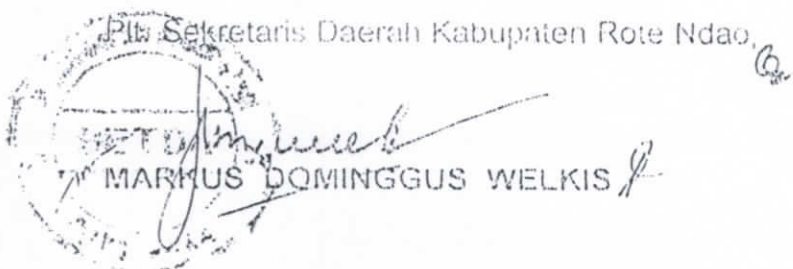 Plt. Sekretaris Daerah Kabupaten Rote Ndao,
SETDA
MARKUS DOMINGGUS WELKIS